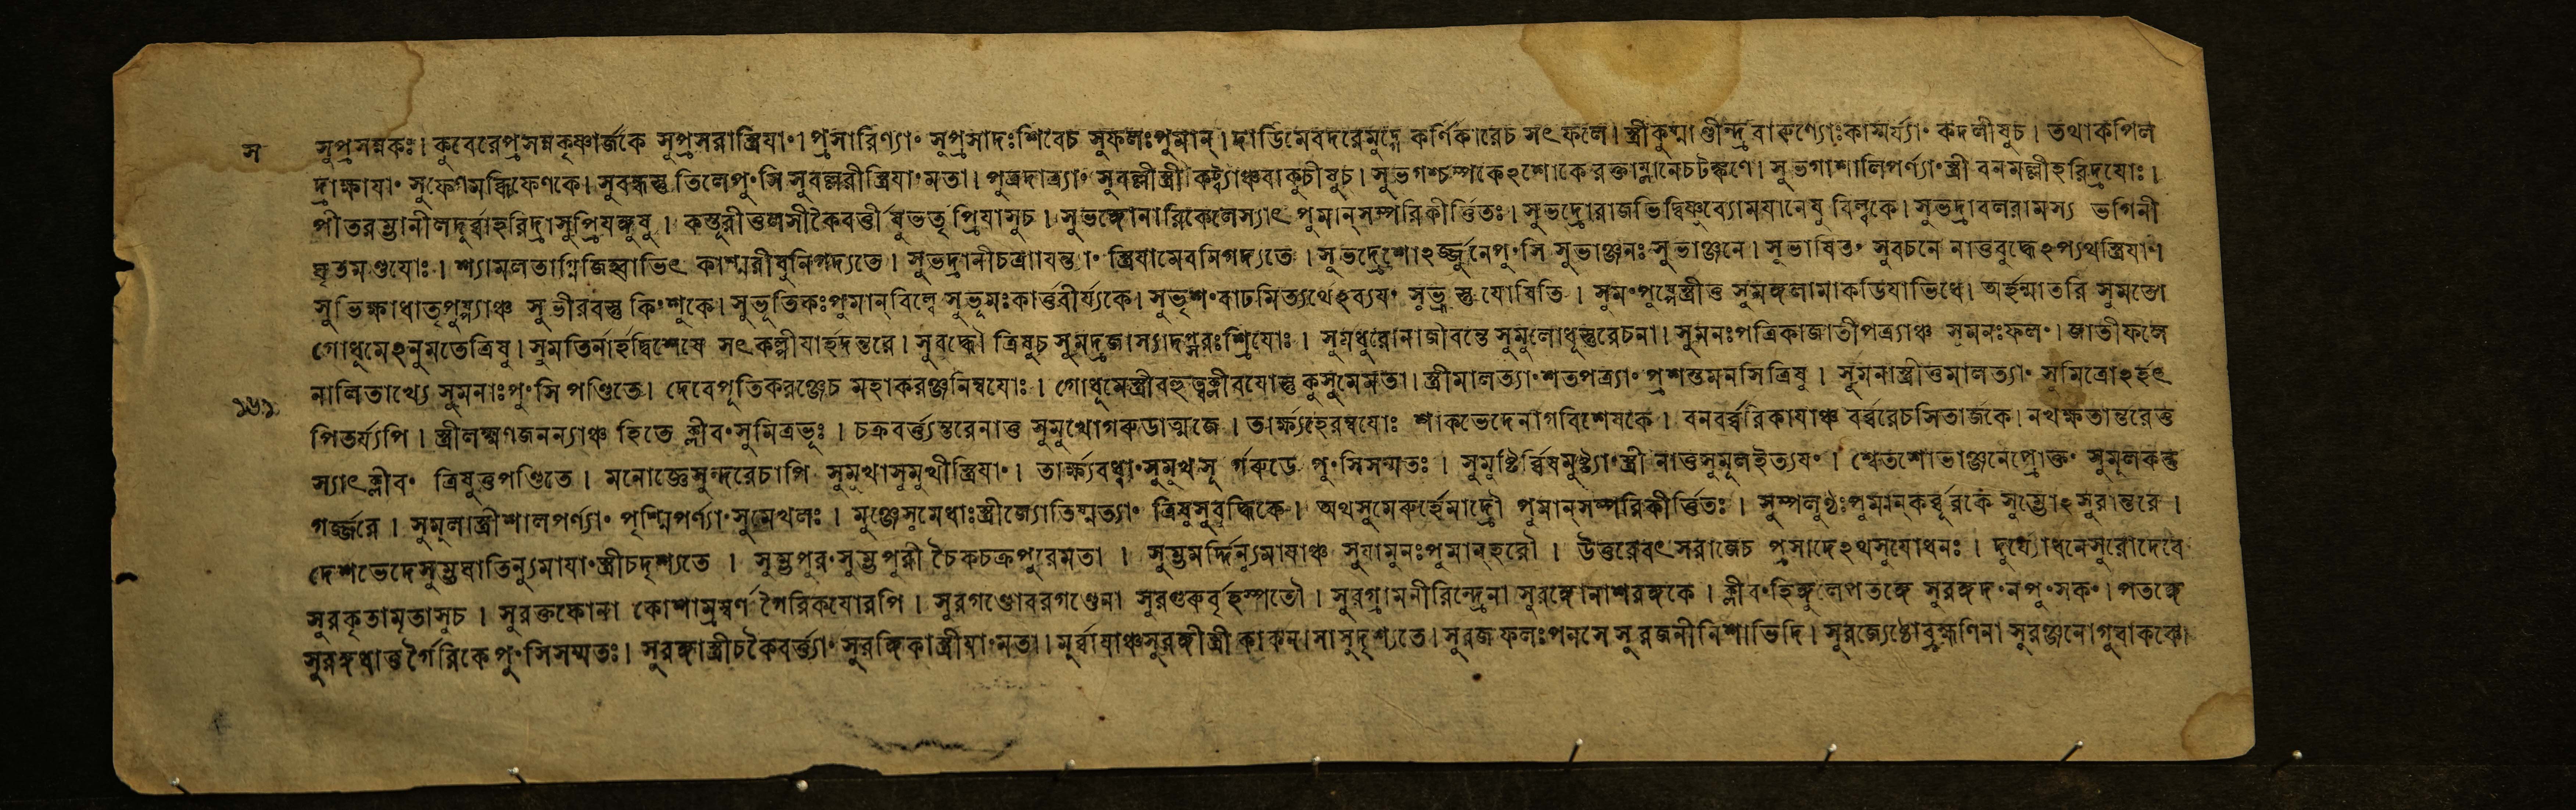 স সুপ্রসন্নকঃ। কুবেরেপ্রসন্নকৃষ্ণার্জকে সুপ্রসরাস্ত্রিযাং। প্রসারিণ্যাং সুপ্রসাদঃশিবেচ সুফলঃপুমান্। দাডিমেবদরেমুদ্গে কর্ণিকারেচ সৎফলে। স্ত্রীকুষ্মাণ্ডীন্দ্রবারুণ্যোঃকাশ্মর্য্যাং কদলীষুচ। তথাকপিল
দ্রাক্ষাযাং সুফেণমব্ধিফেণকে। সুবন্ধস্তু তিলেপুংসি সুবল্লরীস্ত্রিযাংমতা। পুত্রদাত্র্যাং সুবল্লীস্ত্রী কট্ব্যাঞ্চবাকুচীষুচ। সুভগশ্চম্পকেঽশোকেরক্তাম্লানেচটঙ্কণে। সুভগাশালিপর্ণ্যাংস্ত্রী বনমল্লীহরিদ্রযোঃ।
পীতরম্ভানীলদুর্ব্বাহরিদ্রাসুপ্রিযঙ্গুষু। কস্তূরীত্তলসীকৈবর্ত্তীষুভর্তৃপ্রিযাসুচ। সুভঙ্গোনারিকেলেস্যাৎ পুমান্সম্পরিকীর্ত্তিতঃ। সুভদ্রোরাজভিদ্বিষ্ণুব্যোমযানেষু বিল্বকে। সুভদ্রাবলরামস্য ভগিনী
ঘৃতমণ্ডযোঃ। শ্যামলতাগ্নিজিহ্বাভিৎ কাশ্মরীষুনিগদ্যতে। সুভদ্রানীচত্রাযন্ত্যাং স্ত্রিযামেবনিগদ্যতে। সুভদ্রেশোঽর্জ্জুনেপুংসি সুভাঞ্জনঃসুভাঞ্জনে। সুভাষিতং সুবচনে নাত্তবুদ্ধেঽপ্যথস্ত্রিযাং।
সুভিক্ষাধাতৃপুষ্প্যাঞ্চ সুভীরবস্তু কিংশুকে। সুভূতিকঃপুমান্বিল্বে সুভূমঃকার্ত্তবীর্য্যকে। সুভৃশংবাঢমিত্যর্থেঽব্যযং সুভ্রূস্তু যোষিতি। সুমংপুষ্পেস্ত্রীত্ত সুমঙ্গলামাকডিযাভিধে। অর্হন্মাতরি সুমতো
গোধুমেঽনুমতেত্রিষু। সুমতির্নার্হদ্বিশেষে সৎকল্কীযার্হদন্তরে। সুবদ্ধৌ ত্রিষুচ সুমদ্রজাস্যাদপ্সরঃশ্রিযোঃ। সুমধুরোনাজীবন্তে সুমুলোধূস্তুরেচনা। সুমনঃপত্রিকাজাতীপত্র্যাঞ্চ সুমনঃফলং। জাতীফলে
নালিতাখ্যে সুমনাঃপুংসি পণ্ডিতে। দেবেপূতিকরঞ্জেচ মহাকরঞ্জনিম্বযোঃ। গোধুমেস্ত্রীবহুত্বক্লীবযোস্তু কুসুমেমতা। স্ত্রীমালত্যাংশতপত্র্যাং প্রশস্তমনসিত্রিষু। সুমনাস্ত্রীত্তমালত্যাং সুমিত্রোঽর্হৎ
১৬১ পিতর্য্যপি। স্ত্রীলক্ষ্মণজনন্যাঞ্চ হিতে ক্লীবংসুমিত্রভূঃ। চক্রবর্ত্ত্যন্তরেনাত্ত সুমুখোগরুডাত্মজে। তার্ক্ষ্যহেরম্বযোঃ শাকভেদেনাগবিশেষকে। বনবর্ব্বরিকাযাঞ্চ বর্ব্বরেচসিতার্জকে। নখক্ষতান্তরেত্ত
স্যাৎক্লীবং ত্রিষুত্তপণ্ডিতে। মনোজ্ঞেসুন্দরেচাপি সুমুখাসুমুখীস্ত্রিযাং। তার্ক্ষ্যবধ্বাংসুমুখসূর্গরুডে পুংসিসম্মতঃ। সুমুষ্টির্ব্বিষমুষ্ট্যাংস্ত্রী নাত্তসুমূলইত্যযং। শ্বেতশোভাঞ্জনেপ্রোক্তং সুমূলকন্তু
গর্জ্জরে। সুমুলাস্ত্রীশালপর্ণ্যাং পৃশ্নিপর্ণ্যাংসুমেখলঃ। মুঞ্জেসুমেধাঃস্ত্রীজ্যোতিষ্মত্যাং ত্রিষুসুবুদ্ধিকে। অথসুমেরুর্হেমাদ্রৌ পুমান্সম্পরিকীর্ত্তিতঃ। সুম্পলুণ্ঠঃপুমান্কর্বূরকে সুম্ভোঽসুরান্তরে।
দেশভেদেসুম্ভঘাতিন্যুমাযাংস্ত্রীচদৃশ্যতে। সুম্ভপুরংসুম্ভপুরী চৈকচক্রপুরেমতা। সুম্ভমর্দ্দিন্যুমাযাঞ্চ সুযামুনঃপুমান্হরৌ। উত্তরেবৎসরাজেচ প্রসাদেঽথসুযোধনঃ। দুর্য্যোধনেসুরোদেবে
সুরকৃতামৃতাসুচ। সুরক্তকোনা কোশাম্রস্বর্ণ গৈরিকযোরপি। সুরগণ্ডোবরগণ্ডেনা সুরগুরুর্বৃহস্পতৌ। সুরগ্রামনীরিন্দ্রেনা সুরঙ্গোনাশরঙ্গকে। ক্লীবংহিঙ্গুলেপতঙ্গে সুরঙ্গদংনপুংসকং। পতঙ্গে
সুরঙ্গধাত্ত গৈরিকেপুংসিসম্মতঃ। সুরঙ্গাস্ত্রীচকৈবর্ত্ত্যাং সুরঙ্গিকাস্ত্রীযাংমতা। মুর্ব্বাযাঞ্চসুরঙ্গীস্ত্রী কাকনানাসুদৃশ্যতে। সুরজফলঃপনসে সুরজনীনিশাভিদি। সুরজ্যেষ্ঠোব্রহ্মণিনা সুরঞ্জনোগুবাকবৃক্ষে।